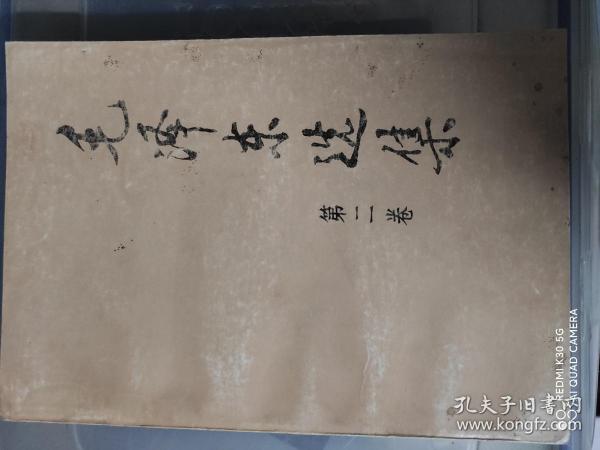 毛泽东选集
第二卷
REDMI K30 5G
AI QUAD CAMERA
孔夫子旧书网
www.kongfz.com